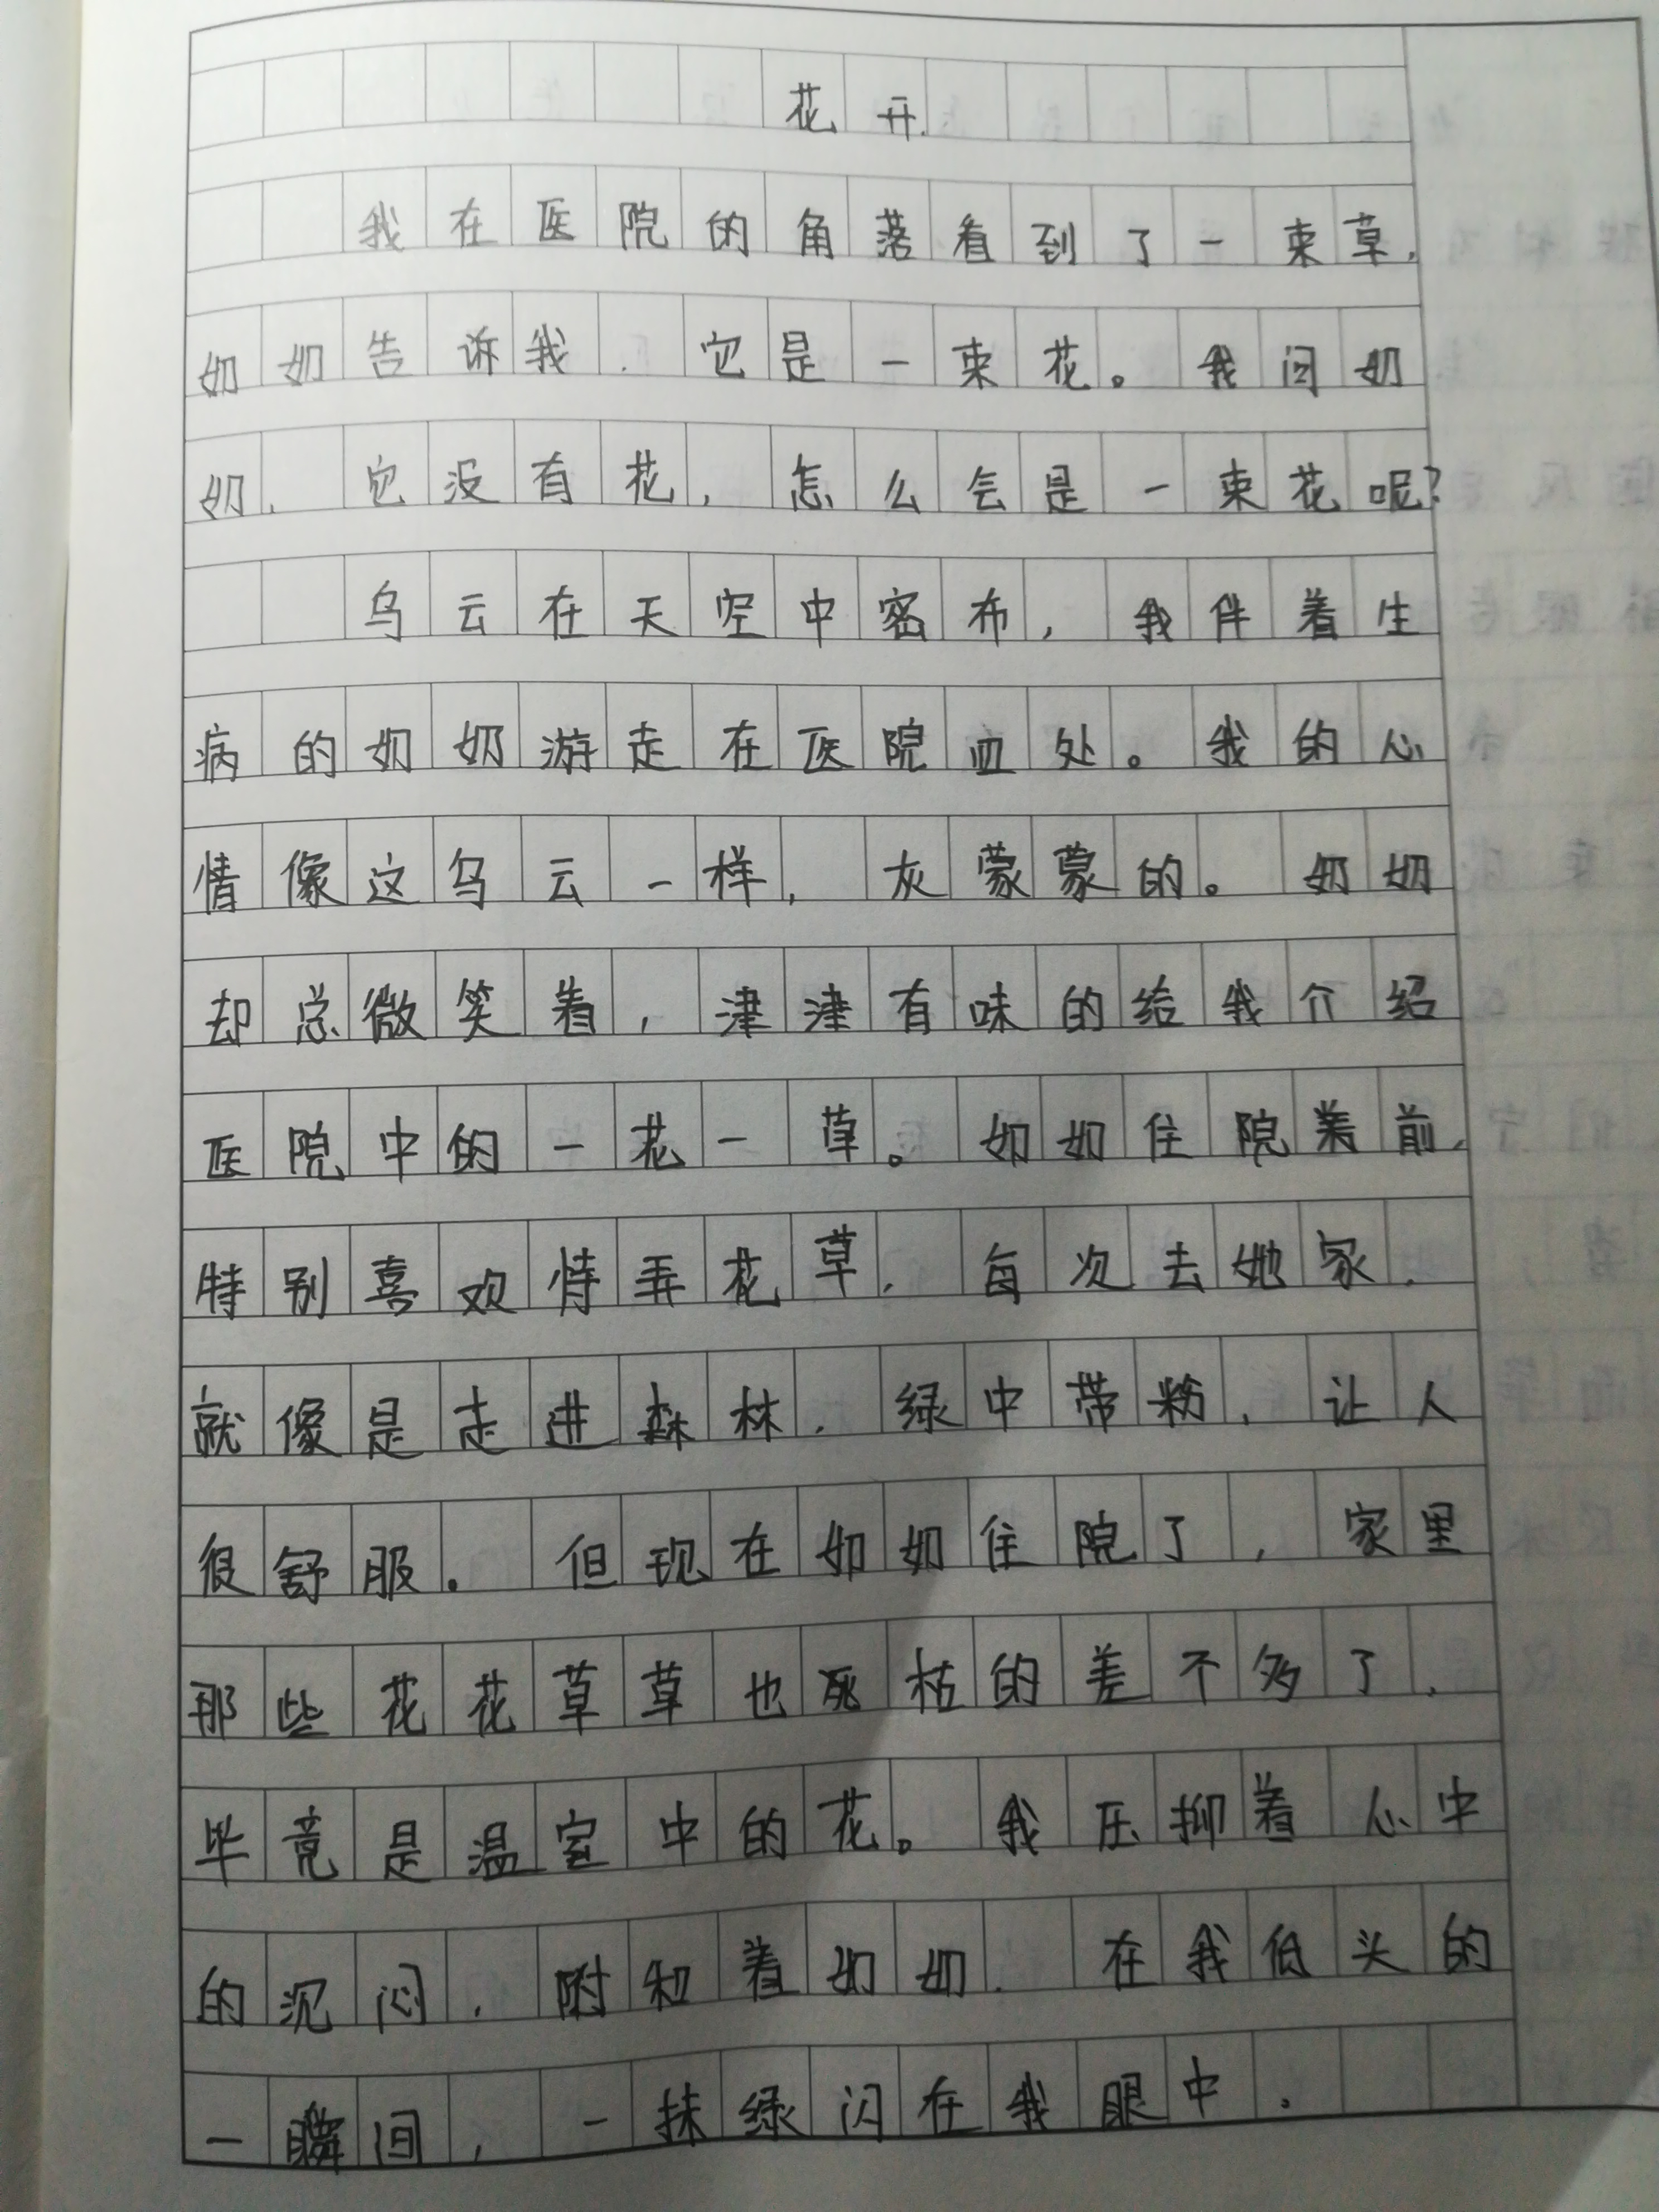 花开
我在医院的角落看到了一束草，
奶奶告诉我，它是一束花。我问奶
奶，它没有花，怎么会是一束花呢？
乌云在天空中密布，我伴着生
病的奶奶游走在医院四处。我的心
情像这乌云一样，灰蒙蒙的。奶奶
却总微笑着，津津有味的给我介绍
医院中的一花一草。奶奶住院前，
特别喜欢侍弄花草，每次去她家，
就像是走进森林，绿中带粉，让人
很舒服。但现在奶奶住院了，家里
那些花花草草也死枯的差不多了，
毕竟是温室中的花。我压抑着心中
的沉闷，附和着奶奶，在我低头的
一瞬间，一抹绿闪在我眼中，